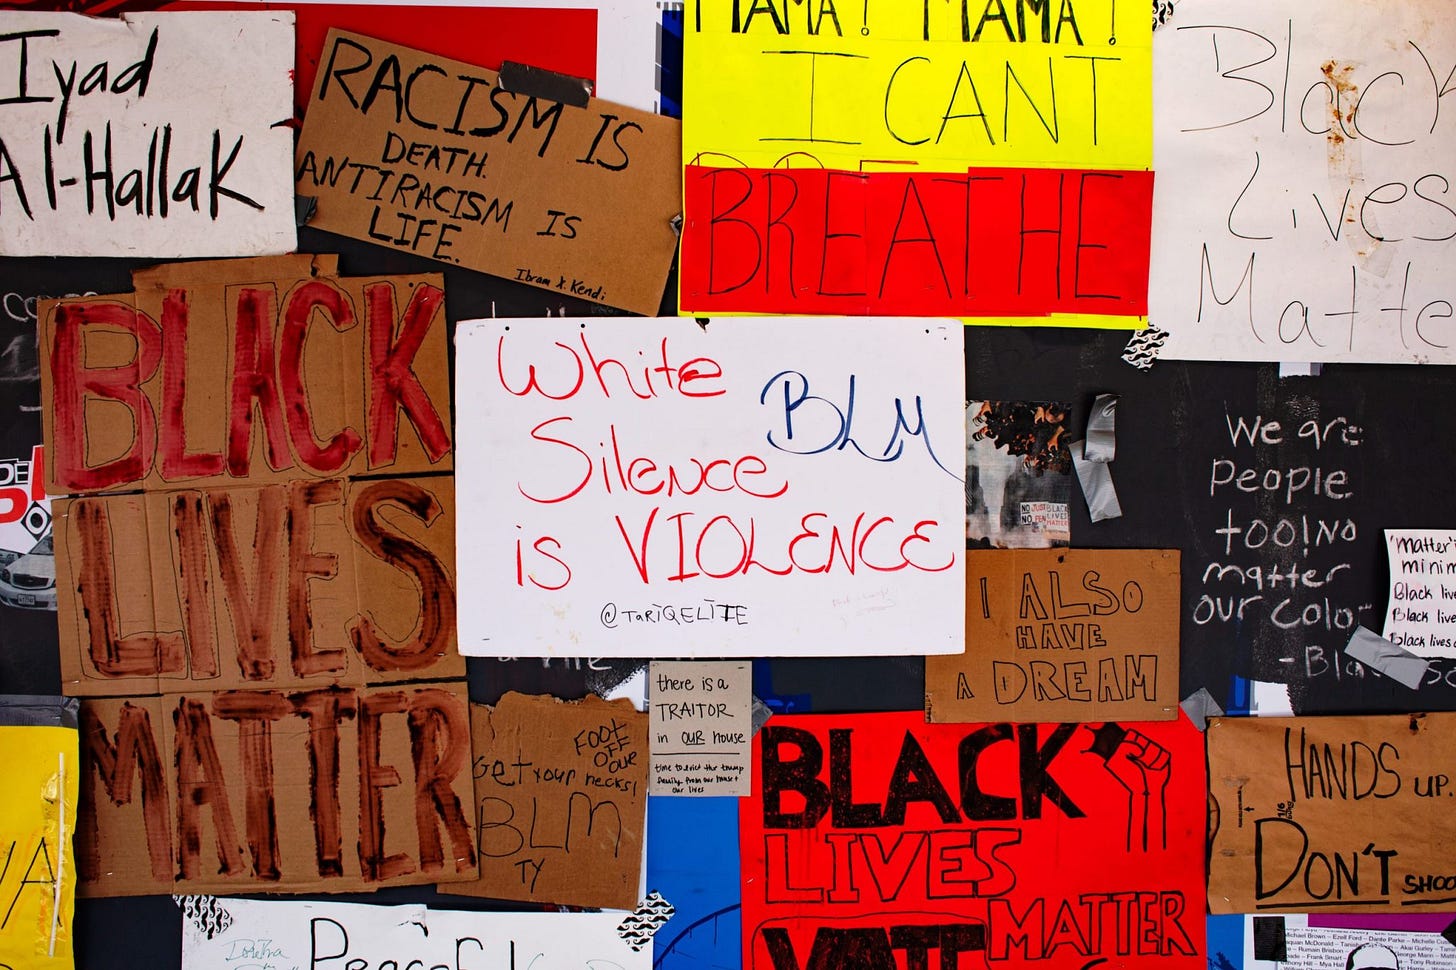 Iyad
Al-Hallak
RACISM IS
DEATH.
ANTIRACISM IS
LIFE.
Ibram X. Kendi
MAMA! MAMA!
I CANT
BREATHE
Black
Lives
Matte
BLACK
LIVES
MATTER
White
Silence
is VIOLENCE
BLM
@TaRiQELiTE
NO JUST
NO PEA
BLACK
LIVES
MATTER
We are
People
too!No
matter
our Colo
- Bla
"Matter"
minim
Black live
Black live
Black lives
I ALSO
HAVE
A DREAM
there is a
TRAITOR
in OUR house
time to evict the trump
family from our house +
our lives
Get your
FOOT
OFF
OUR
necks!
BLM
TY
BLACK
LIVES
MATTER
VOTE
HANDS UP.
DON'T SHOO
Peaceful
Michael Brown – Ezell Ford – Dante Parke – Michelle